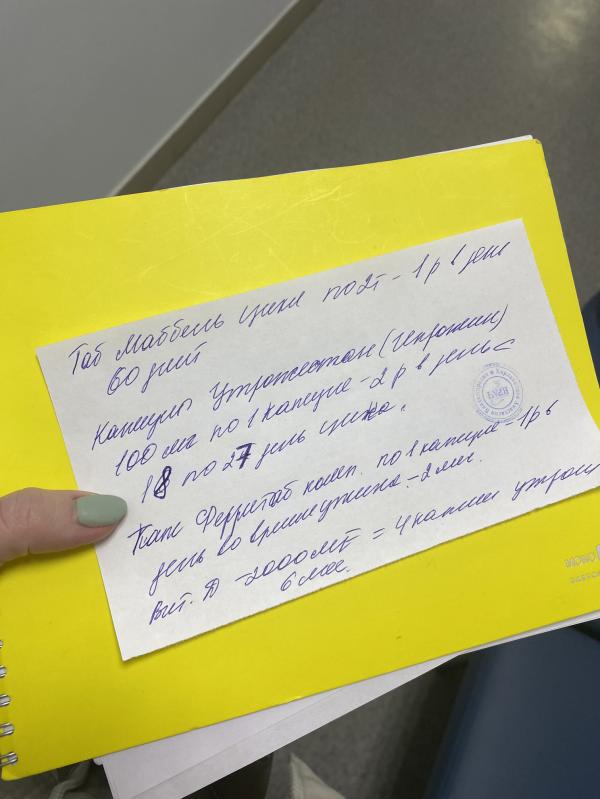 Таб Маббель цикл по 2т - 1р в день
60 дней
Капсулы Утрожестан (гепрожин)
100 мг по 1 капсуле - 2 р в день с
18 по 27 день цикла.
Капс Ферритаб комп. по 1 капсуле - 1р в
день во время ужина - 2 мес.
Вит. Д - 2000 МЕ = 4 капли утром
6 мес.